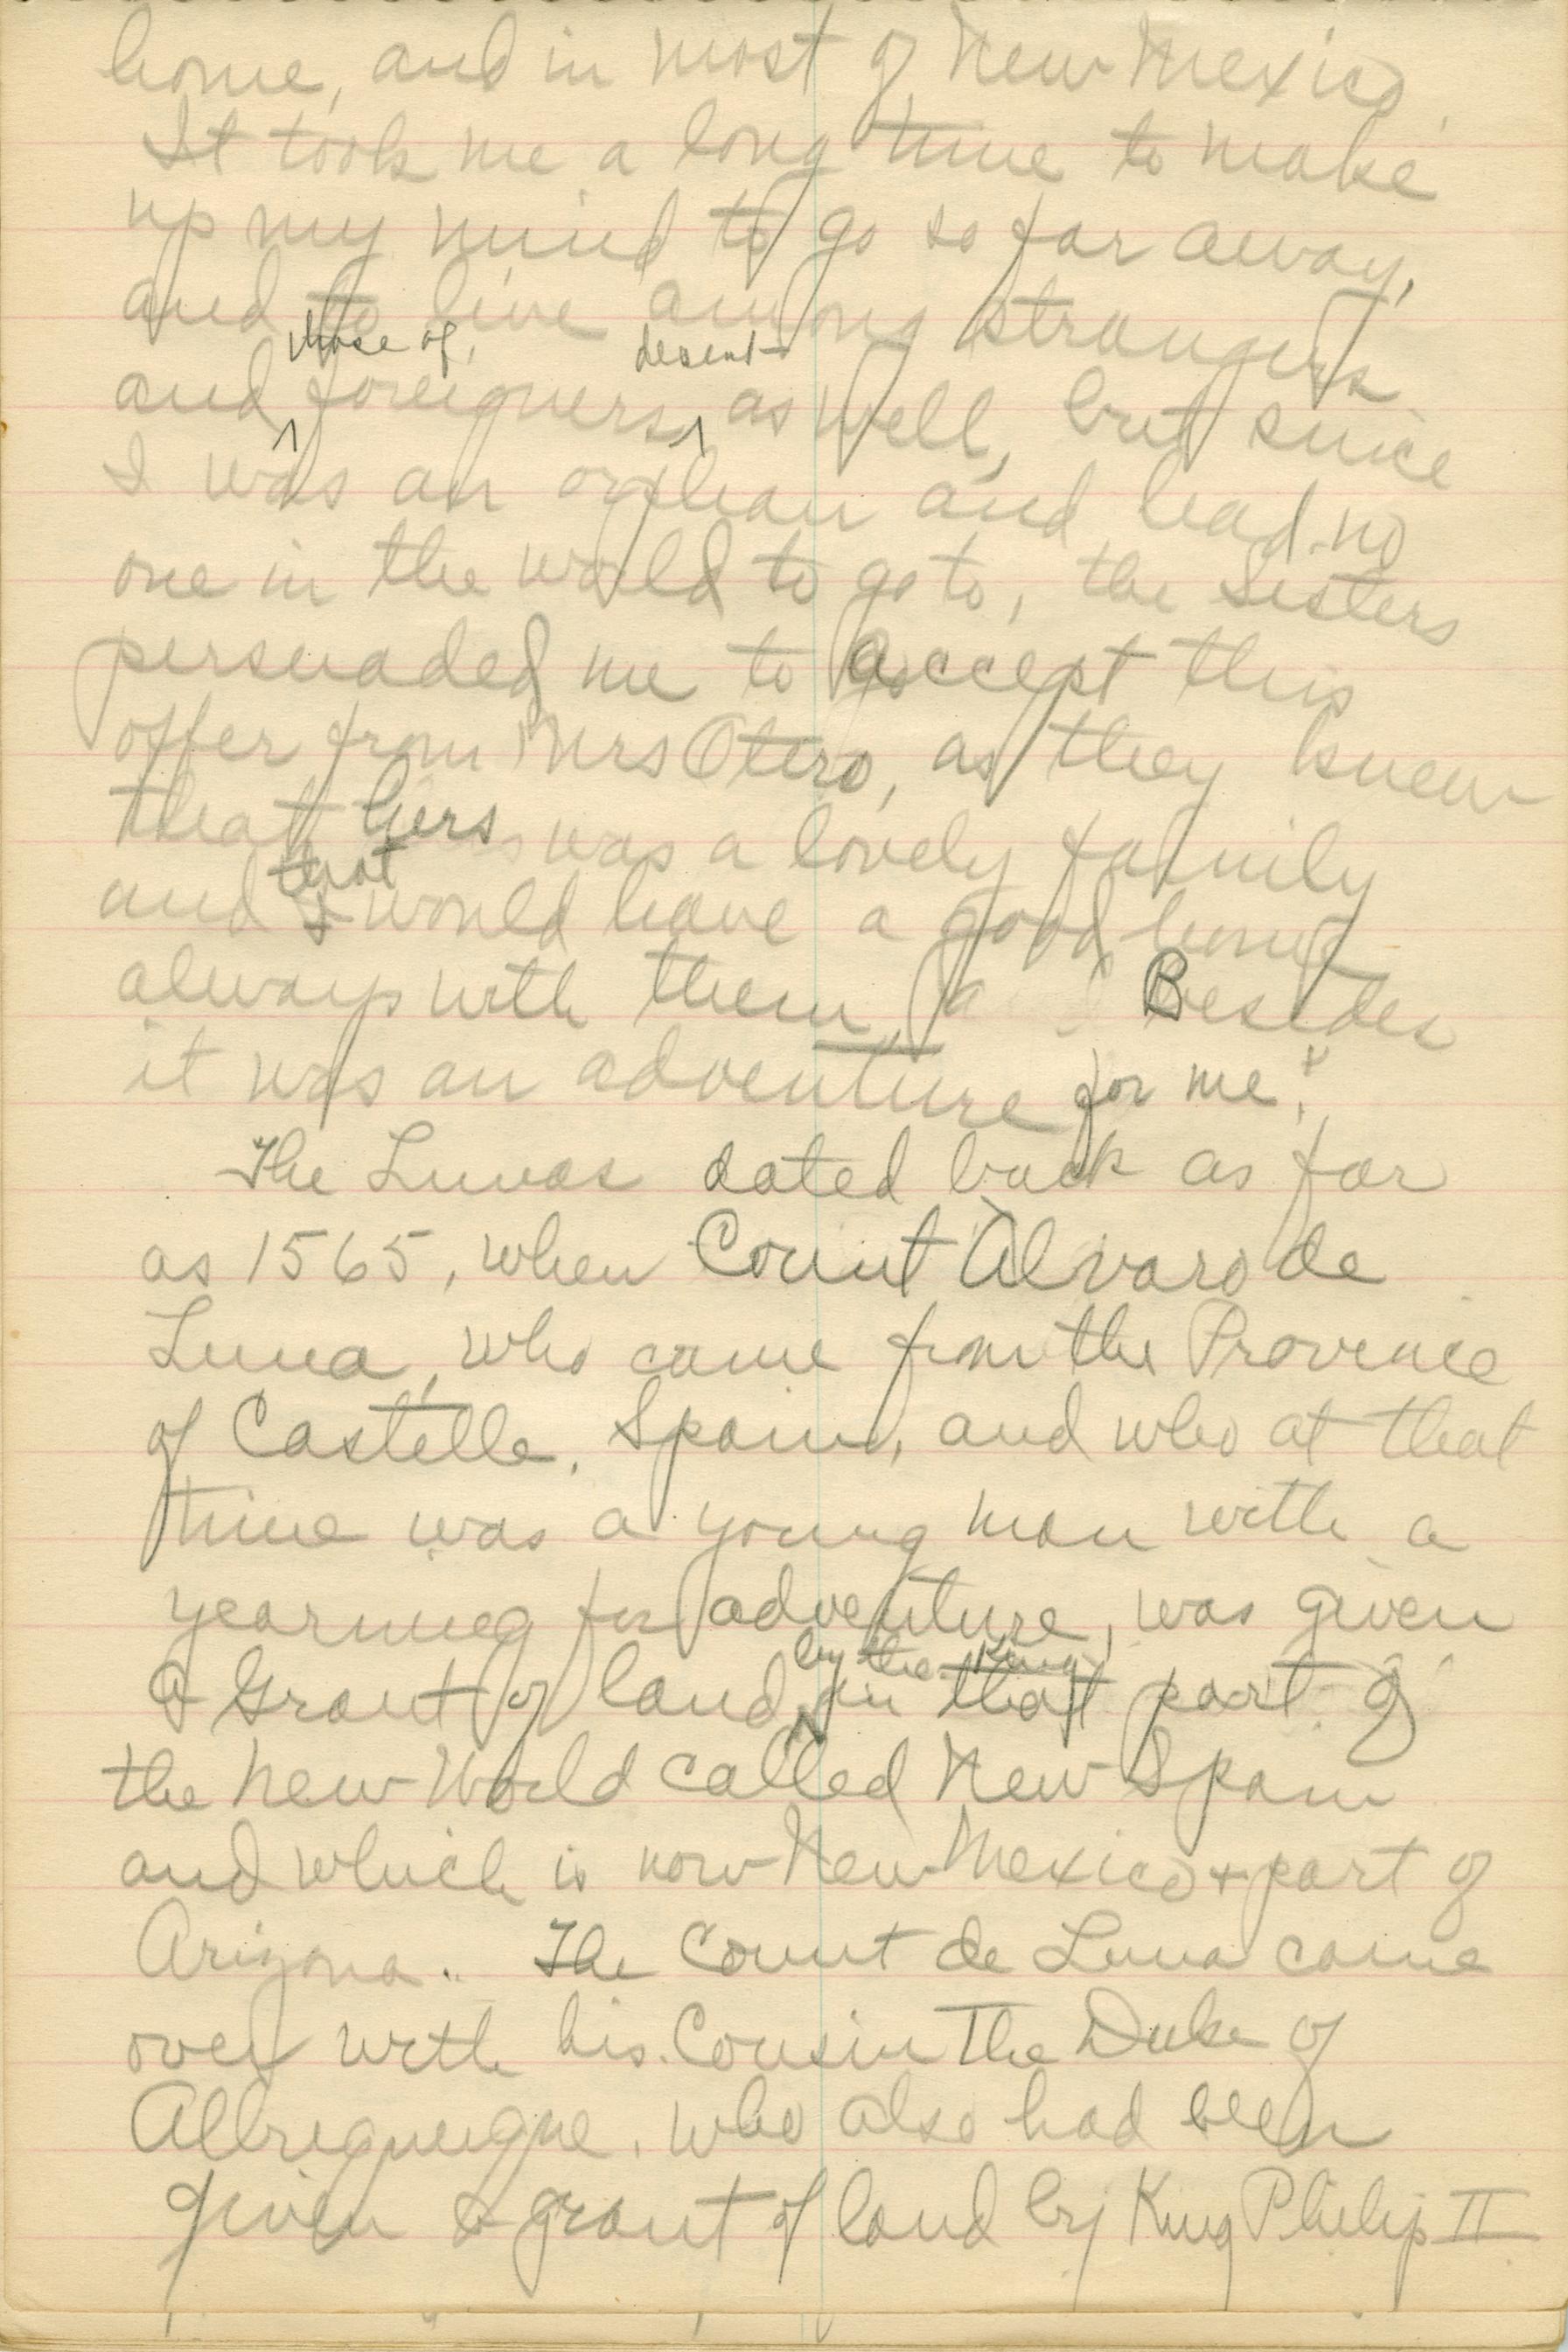 home, and in most of New Mexico.
It took me a long time to make
up my mind to go so far away,
and to live among strangers
those of desent
and foreigners as well, but since
I was an orphan and had no
one in the world to go to, the Sisters
persuaded me to accept this
offer from Mrs Otero, as they knew
that hers was a lovely family
that
and I would have a good home
always with them. Besides
it was an adventure for me."
The Lunas dated back as far
as 1565, when Count Alvaro de
Luna, who came from the Provence
of Castille, Spain, and who at that
time was a young man with a
yearning for adventure, was given
by the King
a Grant of land in that part of
the New World called New Spain
and which is now New Mexico + part of
Arizona. The Count de Luna came
over with his Cousin The Duke of
Alburquerque, who also had been
given a grant of land by King Philip II